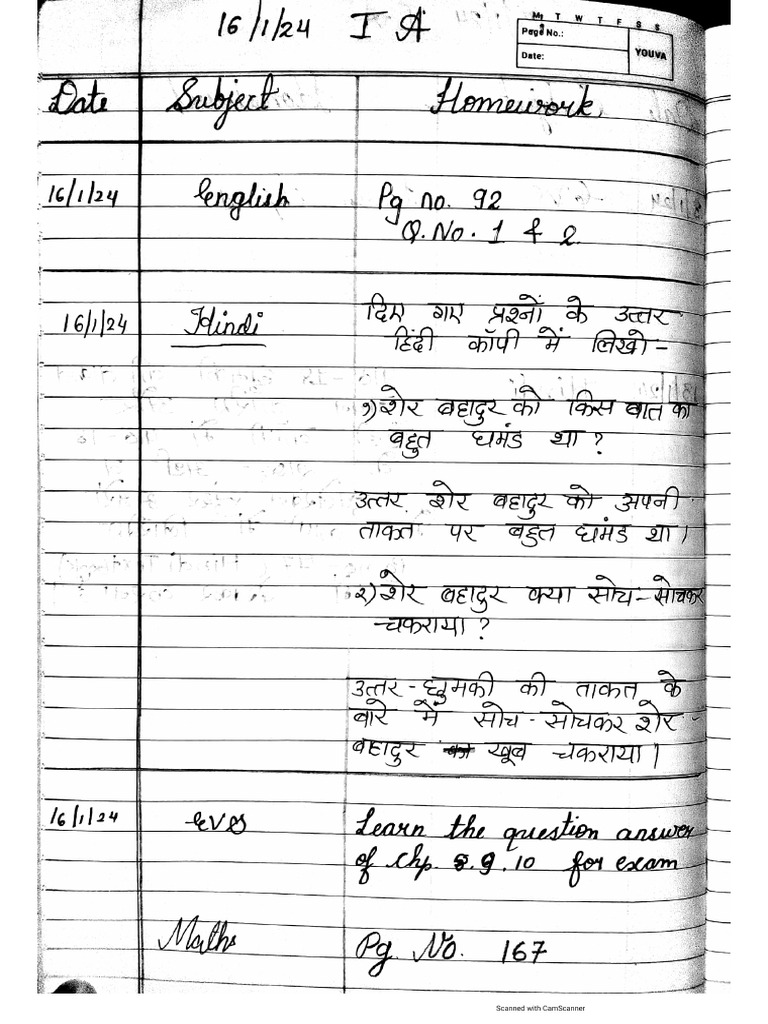 16/1/24 I A
M T W T F S S
Page No.:
Date:
YOUVA
Date Subject Homework
16/1/24 English Pg no. 92
Q.No. 1 & 2
16/1/24 Hindi दिए गए प्रश्नों के उत्तर
हिंदी कॉपी में लिखो-
१) शेर बहादुर को किस बात का
बहुत घमंड था?
उत्तर शेर बहादुर को अपनी
ताकत पर बहुत घमंड था।
२) शेर बहादुर क्या सोच-सोचकर
चकराया?
उत्तर-धुमकी की ताकत के
बारे में सोच-सोचकर शेर-
बहादुर खूब चकराया।
16/1/24 EVS Learn the question answer
of Chp. 8.9.10 for exam
Maths Pg. No. 167
Scanned with CamScanner